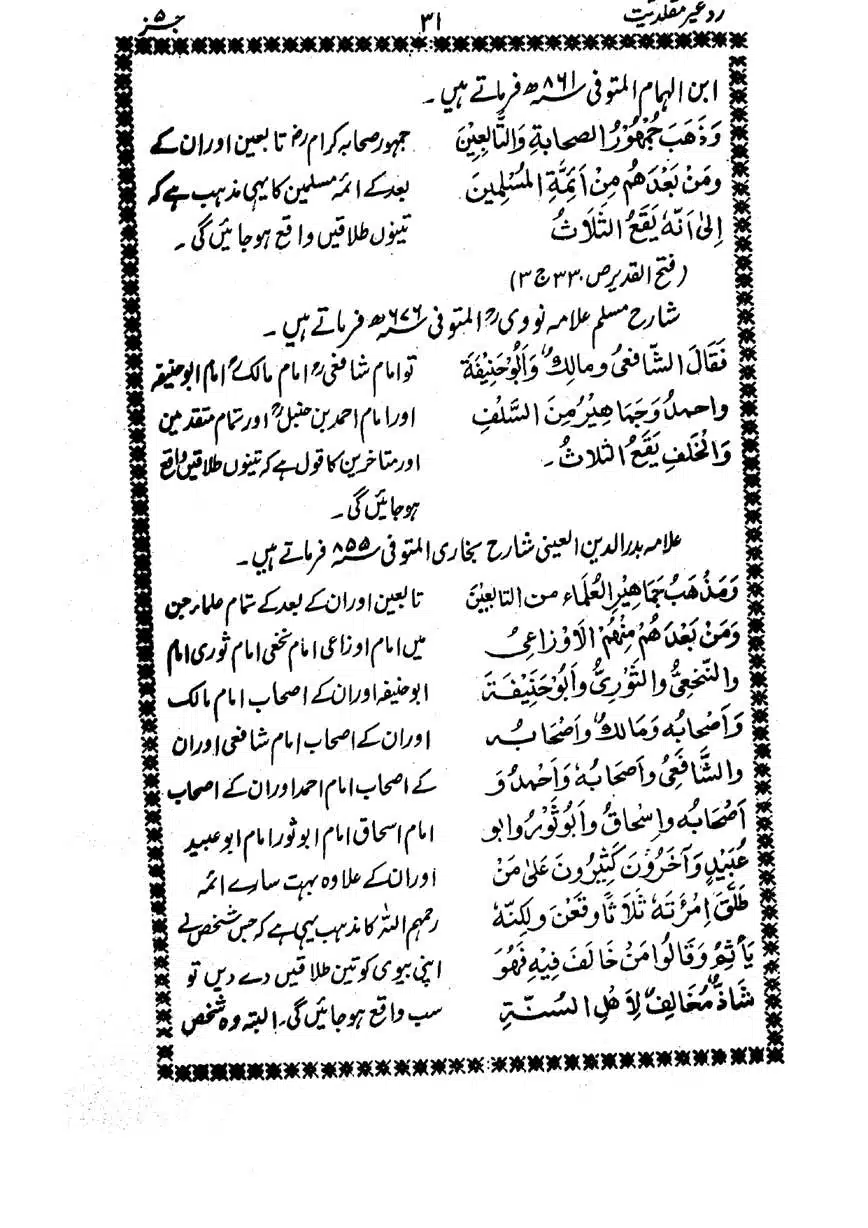 رد غیر مقلدیت ۳۱ جز ۵
ابن الہام المتوفی ۸۶۱ھ فرماتے ہیں۔
وَذَهَبَ جُمْهُوْرُ الصحابةِ وَالتَّابِعِيْنَ جمہور صحابہ کرام رض تابعین اور ان کے
وَمَنْ بَعْدَهُمْ مِنْ اَئِمَّةِ الْمُسْلِمِيْنَ بعد کے ائمہ مسلمین کا یہی مذہب ہے کہ
اِلىٰ اَنَّهٗ يَقَعُ الثَّلَاثُ تینوں طلاقیں واقع ہو جائیں گی۔
(فتح القدیر ص ۳۳۰ ج ۳)
شارح مسلم علامہ نووی رح المتوفی ۶۷۶ھ فرماتے ہیں۔
فَقَالَ الشَّافعىُّ ومالِكٌ وَاَبُوْحَنِيْفَةَ تو امام شافعی رح امام مالک رح امام ابو حنیفہ
واحمدُ وَجَمَاهِيْرُ مِنَ السَّلْفِ اور امام احمد بن حنبل رح اور تمام متقدمین
وَالْخَلَفِ يَقَعُ الثلاثُ۔ اور متاخرین کا قول ہے کہ تینوں طلاقیں واقع
ہو جائیں گی۔
علامہ بدر الدین العینی شارح بخاری المتوفی ۸۵۵ فرماتے ہیں۔
وَمَذْهَبُ جَمَاهِيْرِ الْعُلَمَاءِ من التابعِيْنَ تابعین اور ان کے بعد کے تمام علماء جن
وَمَنْ بَعْدَهُمْ مِنْهُمُ الْاَوْزَاعِىُّ میں امام اوزاعی امام نخعی امام ثوری امام
والنَّخعِىُّ والثَّوْرِىُّ وَاَبُوْحَنِيْفَةَ ابو حنیفہ اور ان کے اصحاب امام مالک
وَاَصْحَابُه وَمَالِكٌ وَاَصْحَابُه اور ان کے اصحاب امام شافعی اور ان
والشَّافعِىُّ واَصحَابُهٗ وَاَحْمَدُ وَ کے اصحاب امام احمد اور ان کے اصحاب
اَصْحَابُه وَاِسْحاقُ وَاَبُوْثَوْرٍ وابو امام اسحاق امام ابو ثور امام ابو عبید
عُبَيْدٍ وَآخَرُوْنَ كَثِيْرُونَ عَلىٰ مَنْ اور ان کے علاوہ بہت سارے ائمہ
طَلَّقَ اِمْرُءَتَهٗ ثَلَاثًا وَقَعْنَ وَلٰكِنَّهٗ رحمہم اللہ کا مذہب یہی ہے کہ جس شخص نے
يَأْثِمُ وَقَالُوا مَنْ خَالَفَ فِيْهِ فَهُوَ اپنی بیوی کو تین طلاقیں دے دیں تو
شَاذٌّ مُخَالِفٌ لِاَهْلِ السُّنَّةِ سب واقع ہو جائیں گی۔ البتہ وہ شخص